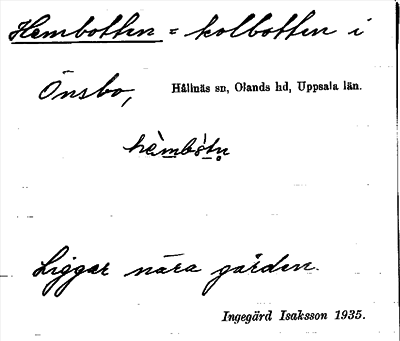 Hembotten = kolbotten i
Önsbo, Hållnäs sn, Olands hd, Uppsala län.
Ligger nära gården.
Ingegärd Isaksson 1935.